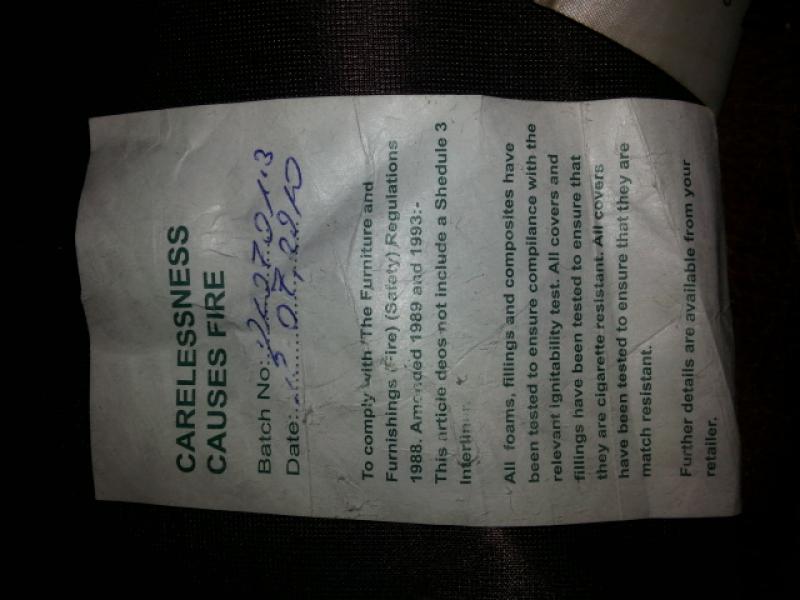 CARELESSNESS
CAUSES FIRE
Batch No:
Date:
To comply with 'The Furniture and
Furnishings (Fire) (Safety) Regulations
1988. Amended 1989 and 1993:-
This article deos not include a Shedule 3
Interliner.
All foams, fillings and composites have
been tested to ensure compliance with the
relevant ignitability test. All covers and
fillings have been tested to ensure that
they are cigarette resistant. All covers
have been tested to ensure that they are
match resistant.
Further details are available from your
retailer.